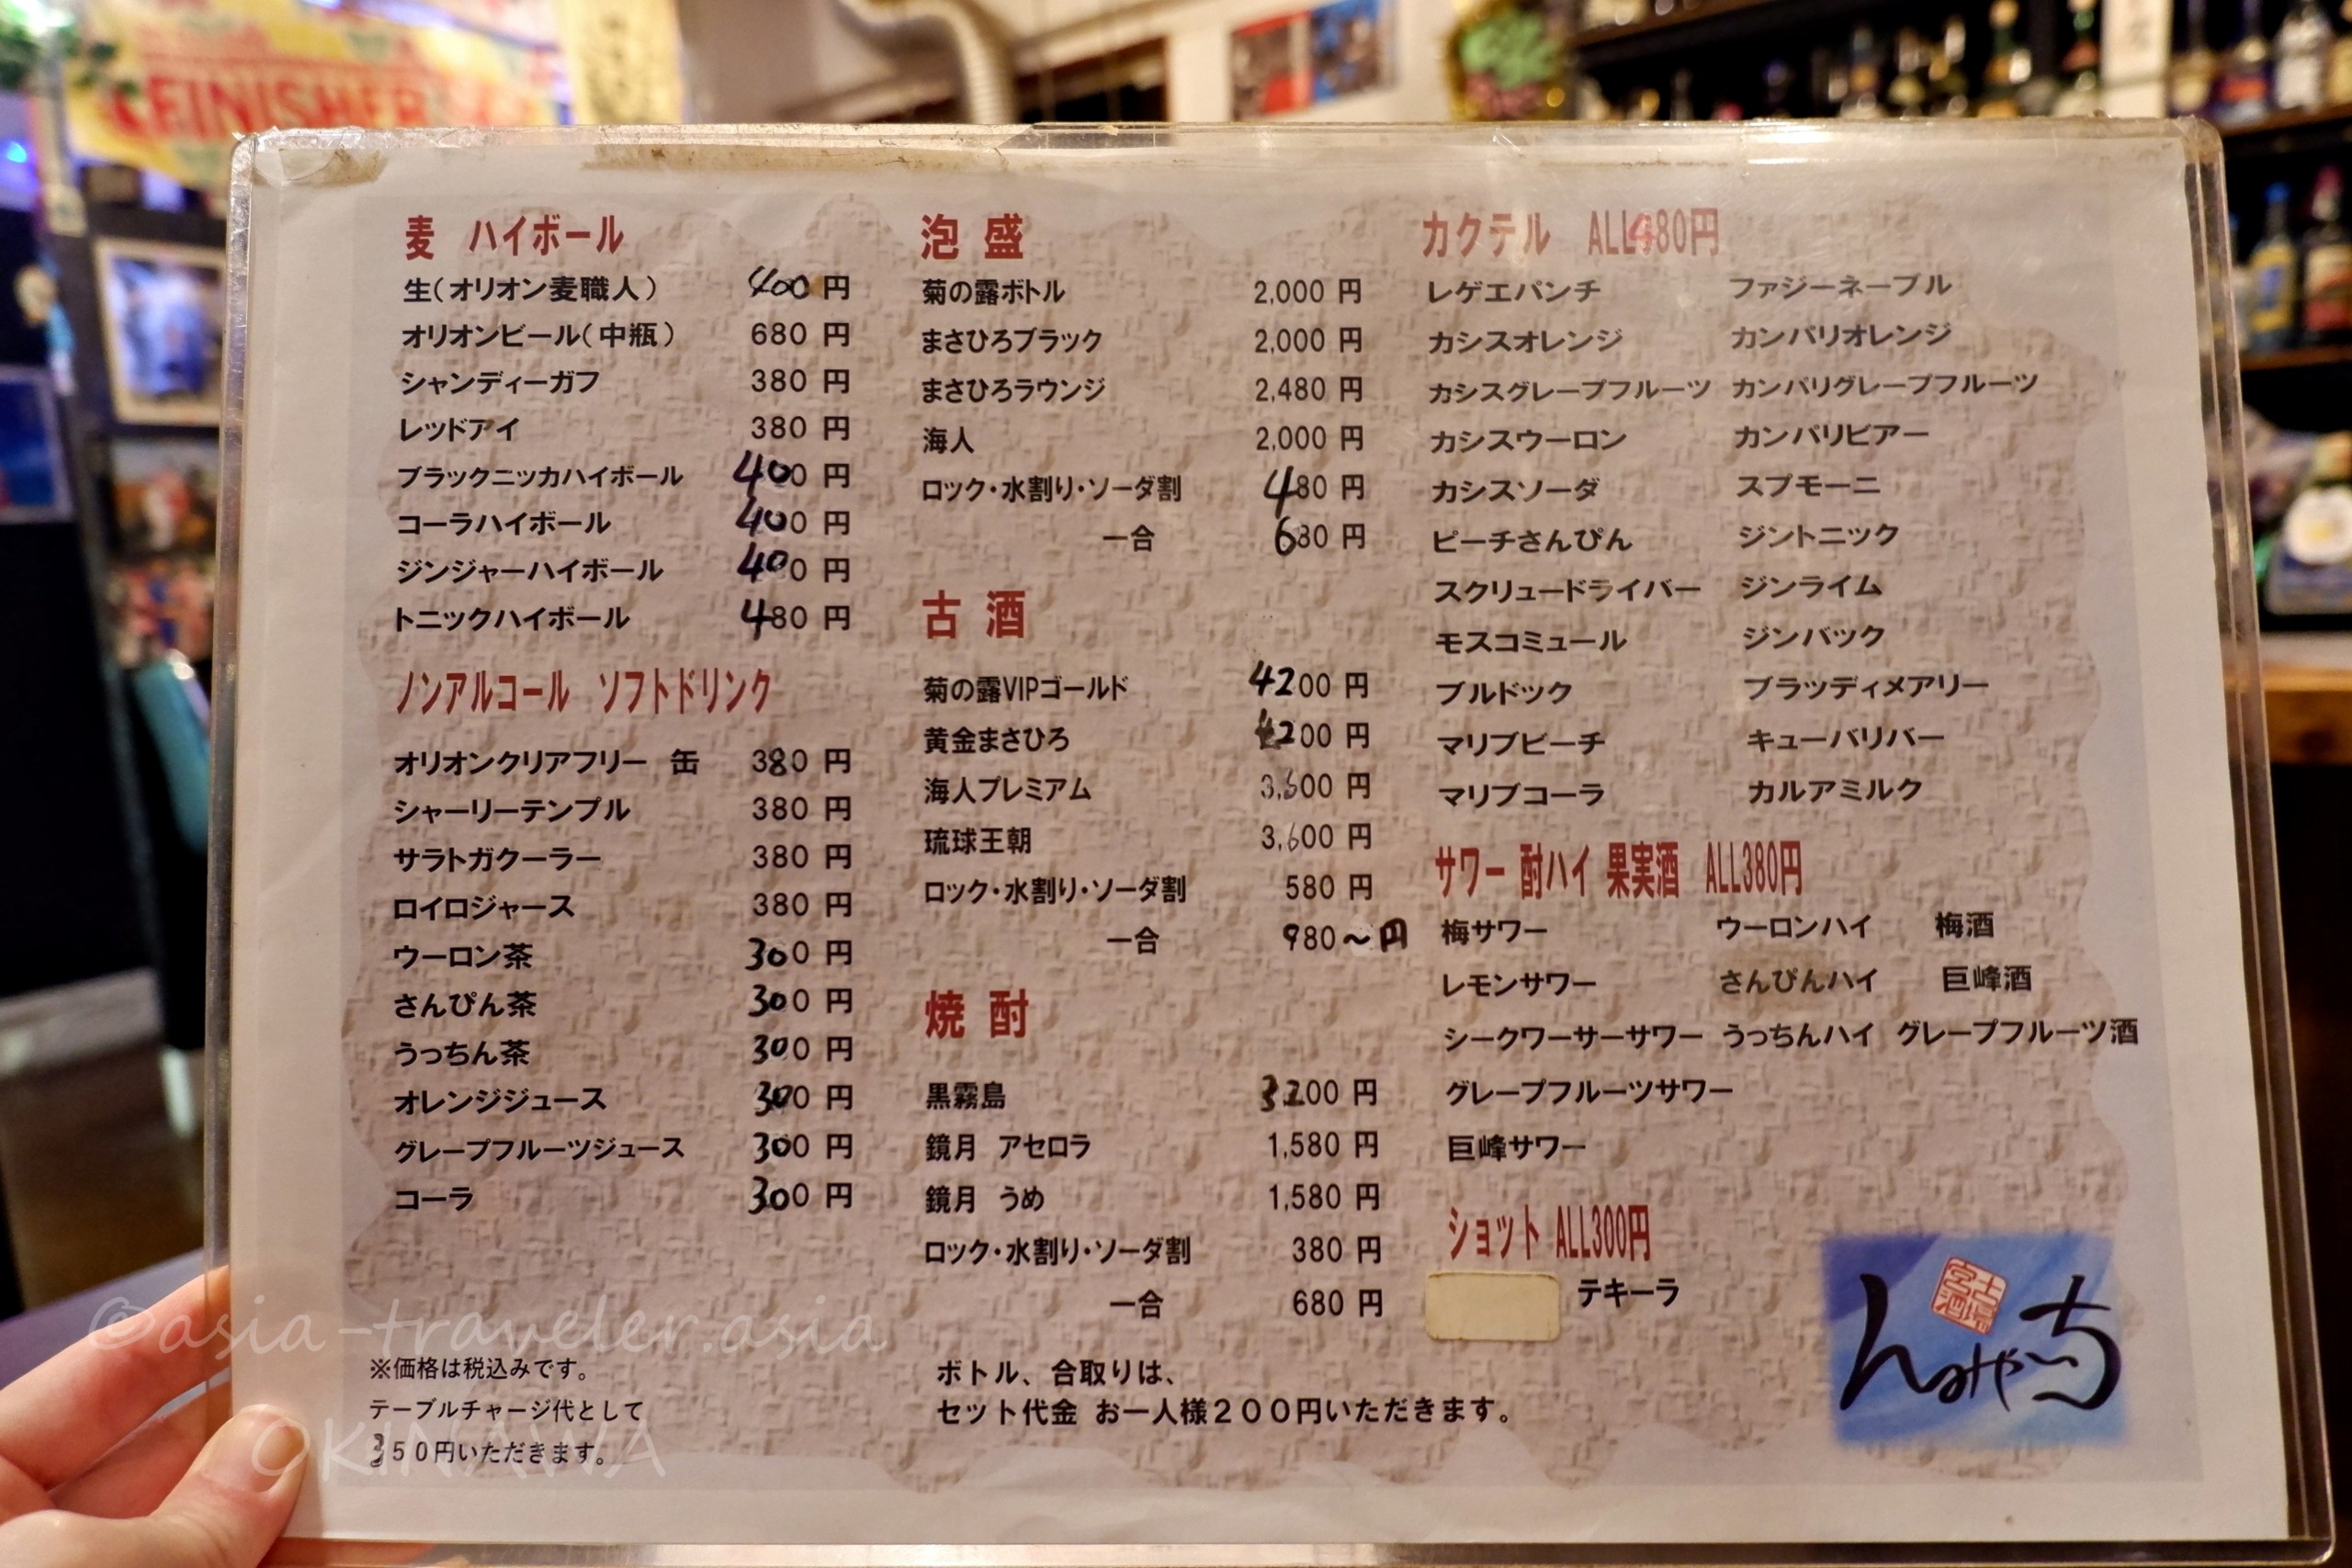 FINISHER
麦 ハイボール
生(オリオン麦職人) 400円
オリオンビール(中瓶) 680円
シャンディーガフ 380円
レッドアイ 380円
ブラックニッカハイボール 400円
コーラハイボール 400円
ジンジャーハイボール 400円
トニックハイボール 480円
ノンアルコール ソフトドリンク
オリオンクリアフリー 缶 380円
シャーリーテンプル 380円
サラトガクーラー 380円
ロイロジャース 380円
ウーロン茶 300円
さんぴん茶 300円
うっちん茶 300円
オレンジジュース 300円
グレープフルーツジュース 300円
コーラ 300円
※価格は税込みです。
テーブルチャージ代として
350円いただきます。
泡盛
菊の露ボトル 2,000円
まさひろブラック 2,000円
まさひろラウンジ 2,480円
海人 2,000円
ロック・水割り・ソーダ割 480円
一合 680円
古酒
菊の露VIPゴールド 4200円
黄金まさひろ 4200円
海人プレミアム 3,600円
琉球王朝 3,600円
ロック・水割り・ソーダ割 580円
一合 980～円
焼酎
黒霧島 3200円
鏡月 アセロラ 1,580円
鏡月 うめ 1,580円
ロック・水割り・ソーダ割 380円
一合 680円
ボトル、合取りは、
セット代金 お一人様200円いただきます。
カクテル ALL480円
レゲエパンチ ファジーネーブル
カシスオレンジ カンパリオレンジ
カシスグレープフルーツ カンパリグレープフルーツ
カシスウーロン カンパリビアー
カシスソーダ スプモーニ
ピーチさんぴん ジントニック
スクリュードライバー ジンライム
モスコミュール ジンバック
ブルドック ブラッディメアリー
マリブピーチ キューバリバー
マリブコーラ カルアミルク
サワー 酎ハイ 果実酒 ALL380円
梅サワー ウーロンハイ 梅酒
レモンサワー さんぴんハイ 巨峰酒
シークワーサーサワー うっちんハイ グレープフルーツ酒
グレープフルーツサワー
巨峰サワー
ショット ALL300円
テキーラ
んみゃーち
©asia-traveler.asia
OKINAWA